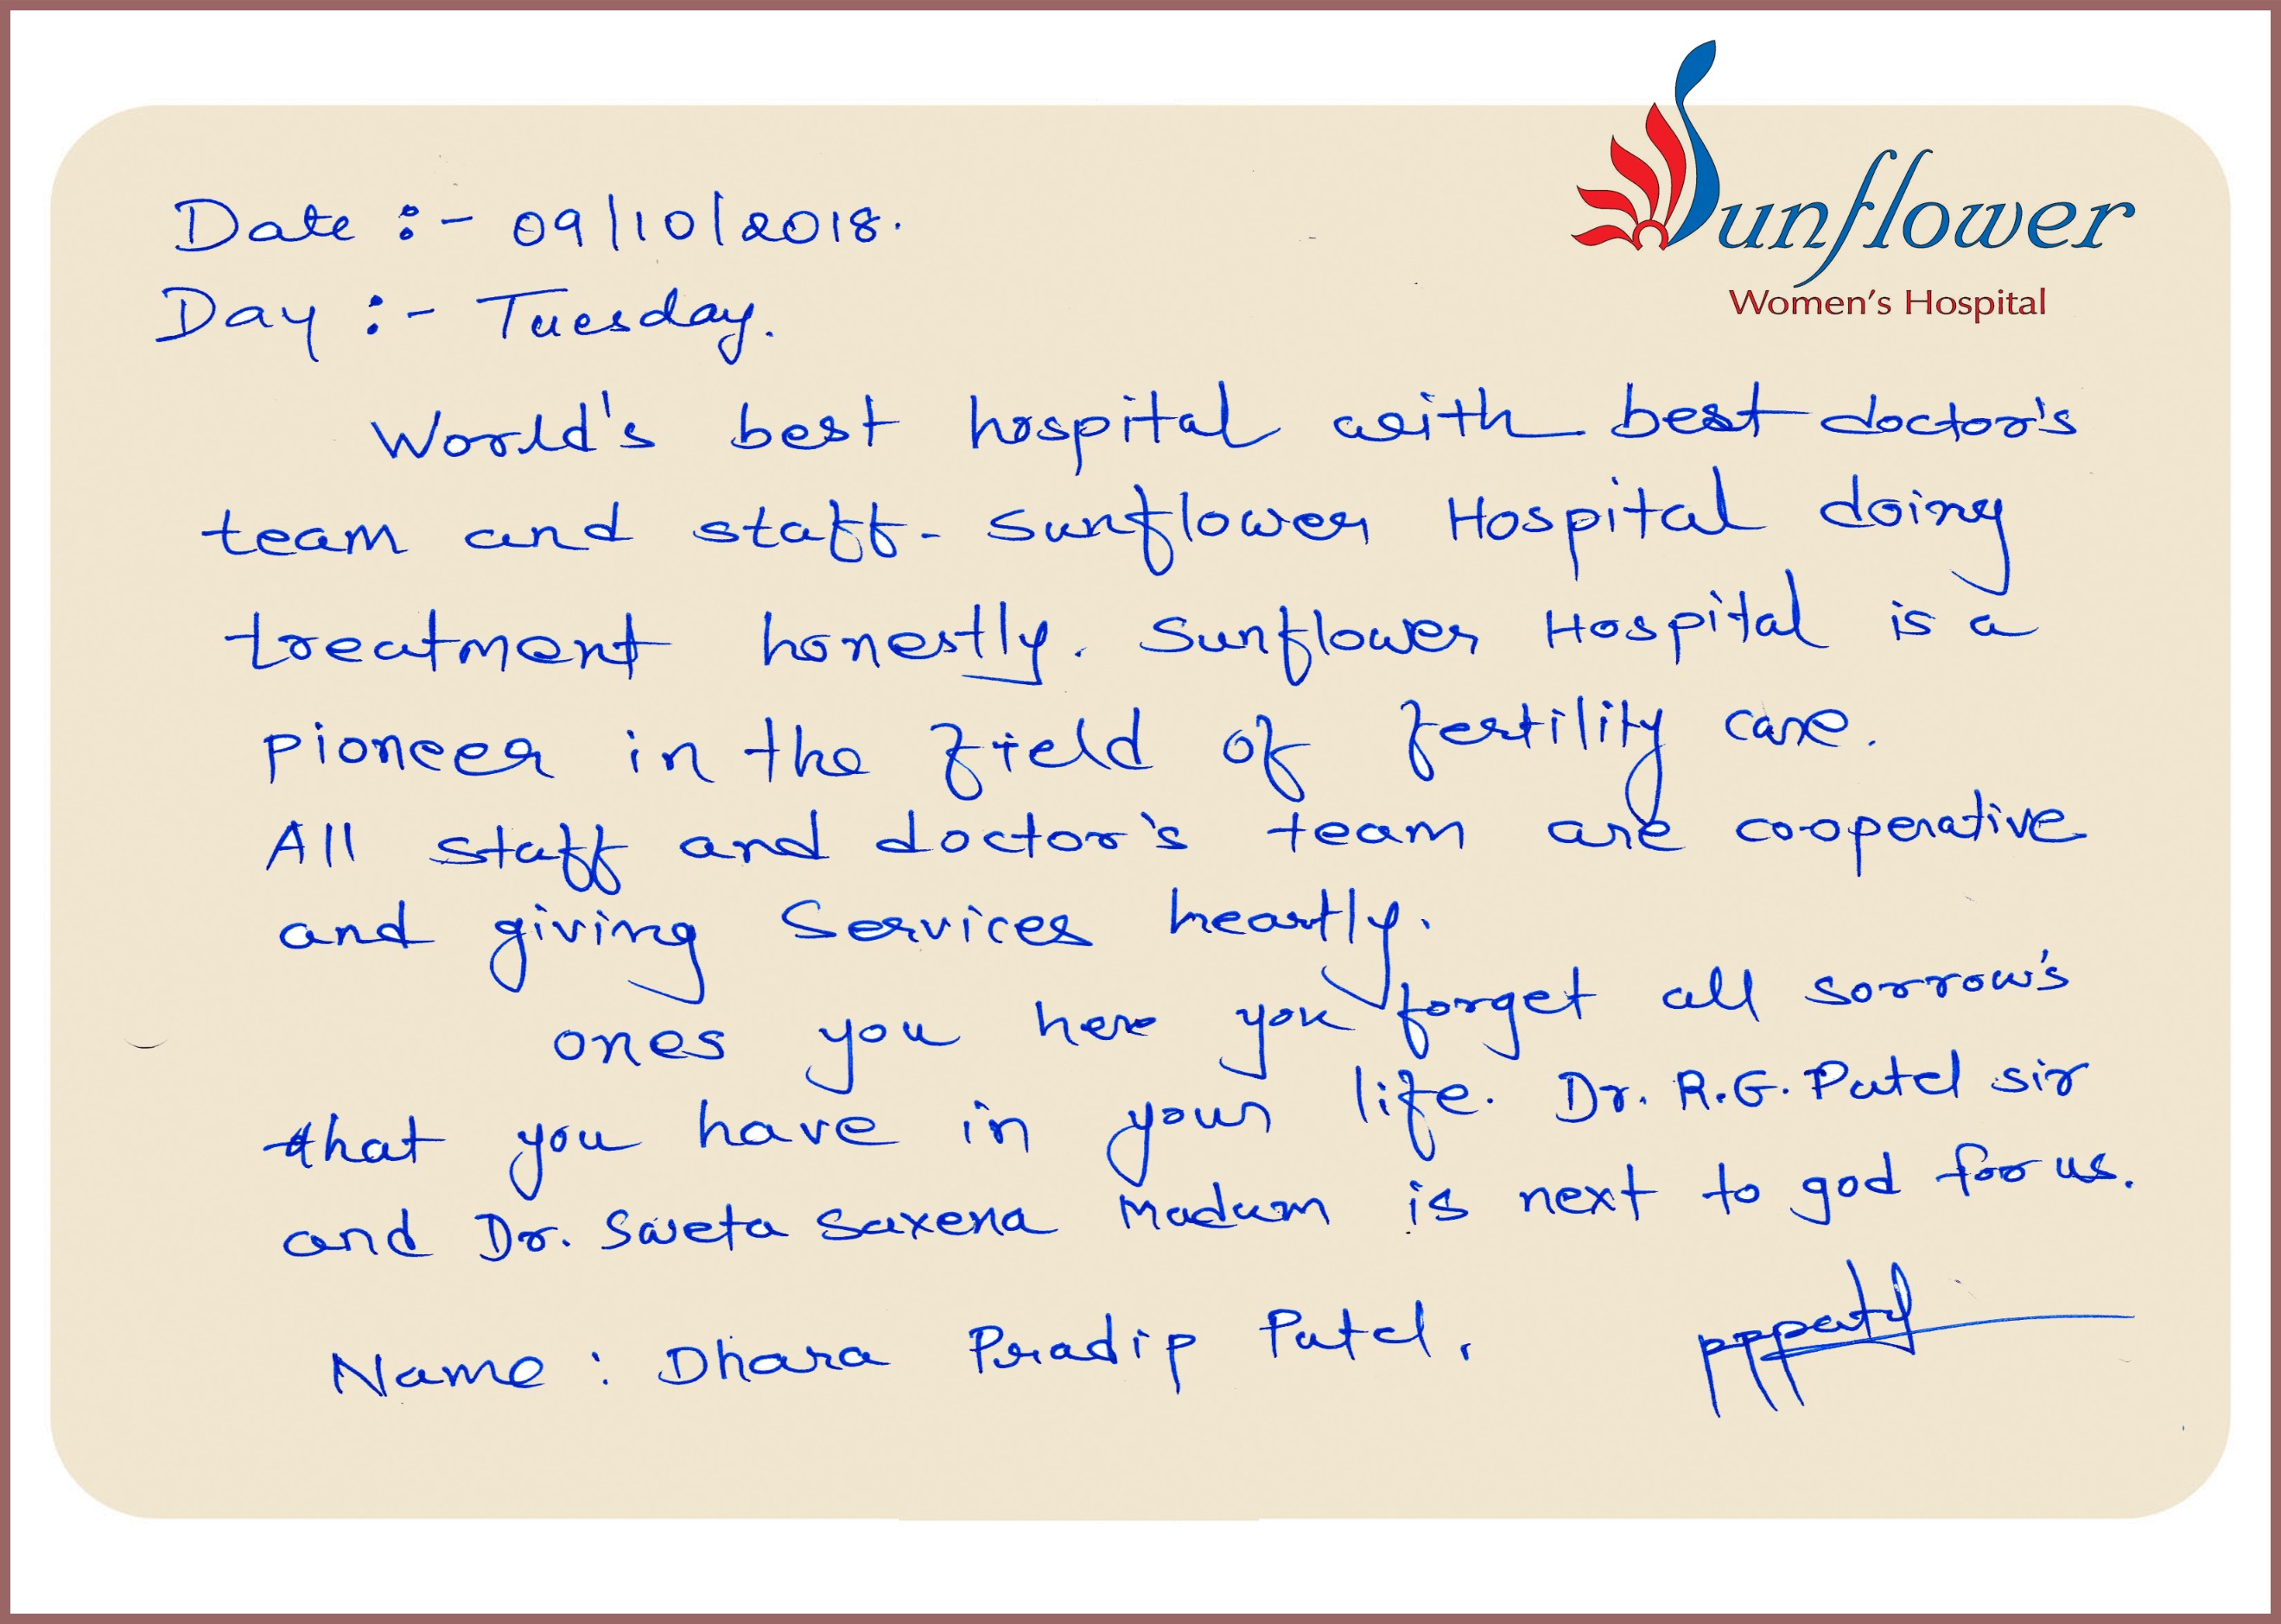 Sunflower
Women's Hospital
Date :- 09/10/2018.
Day :- Tuesday.
World's best hospital with best doctor's
team and staff. Sunflower Hospital doing
treatment honestly. Sunflower Hospital is a
pioneer in the field of fertility care.
All staff and doctor's team are co-operative
and giving Services heartly.
ones you here you forget all sorrow's
that you have in your life. Dr. R.G. Patel sir
and Dr. Sweta Saxena Madam is next to god for us.
Name : Dhara Pradip Patel.
pppatel